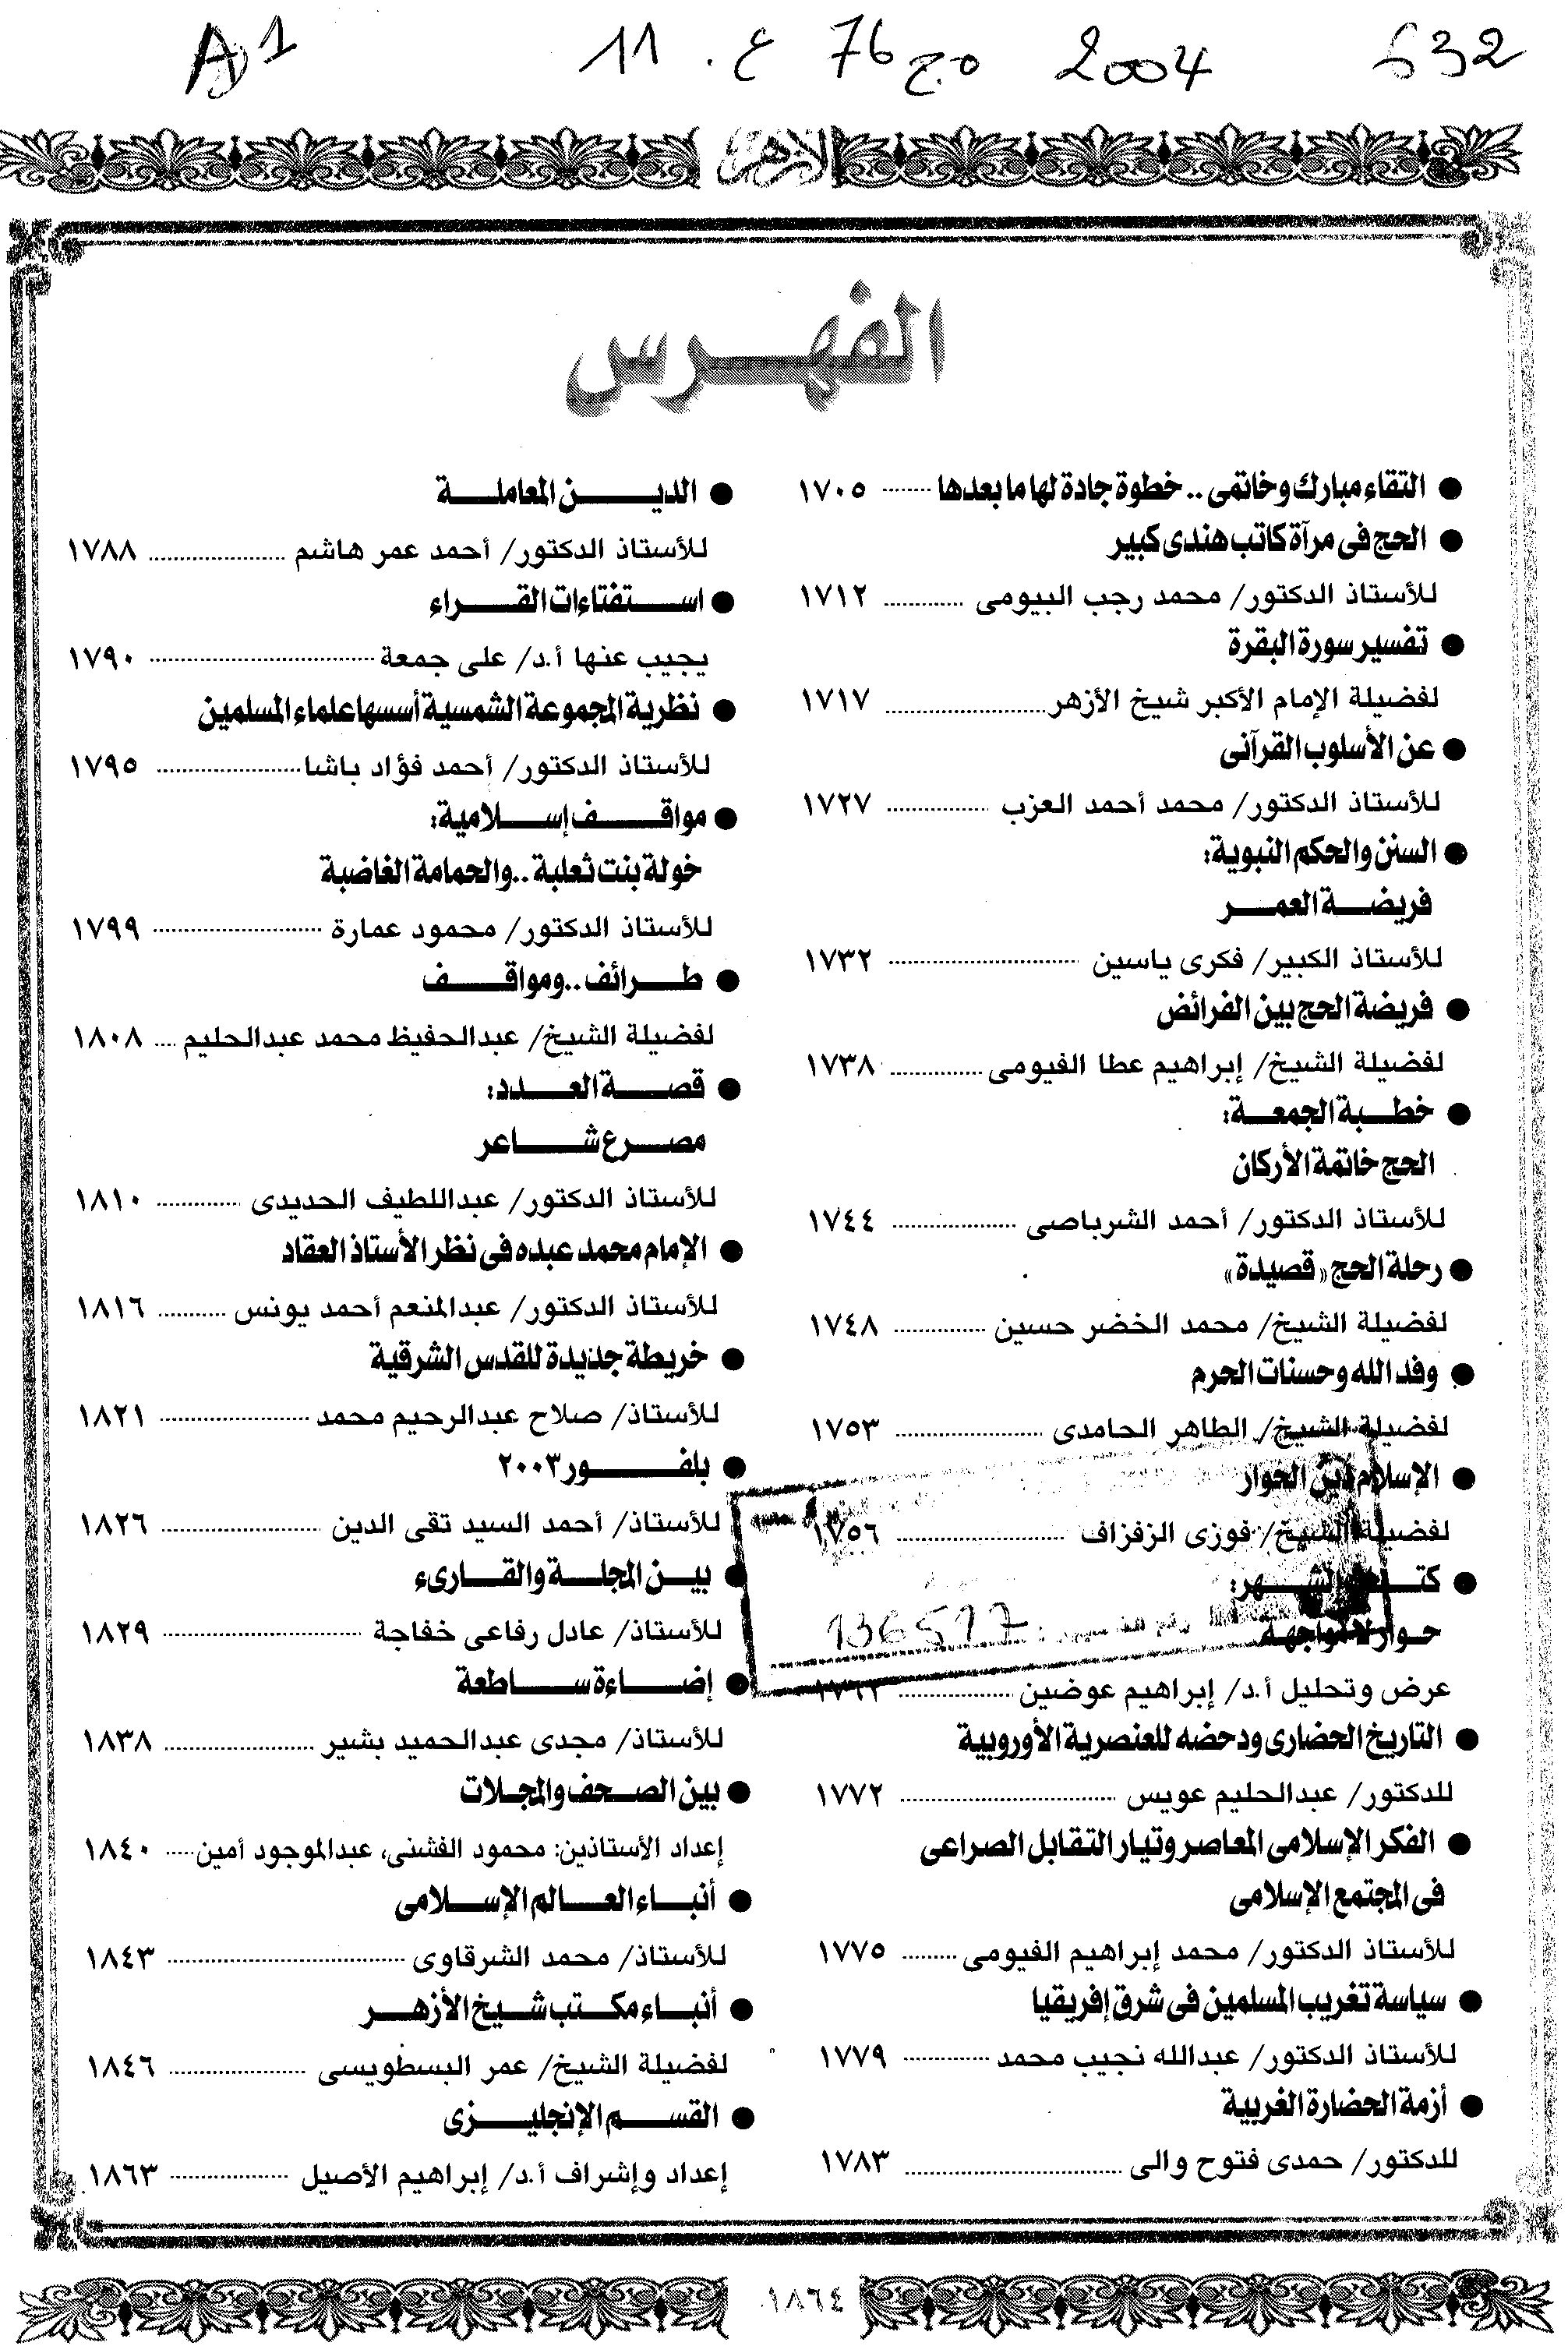 A1 11 .ع 76 ج.ه 2004 632
الأزهر
الفهرس
● التقاء مبارك وخاتمى .. خطوة جادة لها ما بعدها ........ ١٧٠٥
● الحج فى مرآة كاتب هندى كبير
للأستاذ الدكتور/ محمد رجب البيومى ............. ١٧١٢
● تفسير سورة البقرة
لفضيلة الإمام الأكبر شيخ الأزهر ............. ١٧١٧
● عن الأسلوب القرآنى
للأستاذ الدكتور/ محمد أحمد العزب ............. ١٧٢٧
● السنن والحكم النبوية:
فريضة العمر
للأستاذ الكبير/ فكرى ياسين ............. ١٧٣٢
● فريضة الحج بين الفرائض
لفضيلة الشيخ/ إبراهيم عطا الفيومى ............. ١٧٣٨
● خطبة الجمعة:
الحج خاتمة الأركان
للأستاذ الدكتور/ أحمد الشرباصى ............. ١٧٤٤
● رحلة الحج «قصيدة»
لفضيلة الشيخ/ محمد الخضر حسين ............. ١٧٤٨
● وفد الله وحسنات الحرم
لفضيلة الشيخ/ الطاهر الحامدى ............. ١٧٥٣
● الإسلام دين الحوار
لفضيلة الشيخ/ فوزى الزفزاف ............. ١٧٥٦
● كتاب الشهر:
حوار لا مواجهة
136517
عرض وتحليل أ.د/ إبراهيم عوضين .............
● التاريخ الحضارى ودحضه للعنصرية الأوروبية
للدكتور/ عبدالحليم عويس ............. ١٧٧٢
● الفكر الإسلامى المعاصر وتيار التقابل الصراعى
فى المجتمع الإسلامى
للأستاذ الدكتور/ محمد إبراهيم الفيومى ......... ١٧٧٥
● سياسة تغريب المسلمين فى شرق إفريقيا
للأستاذ الدكتور/ عبدالله نجيب محمد ............. ١٧٧٩
● أزمة الحضارة الغربية
للدكتور/ حمدى فتوح والى ............. ١٧٨٣
● الدين المعاملة
للأستاذ الدكتور/ أحمد عمر هاشم ............. ١٧٨٨
● استفتاءات القراء
يجيب عنها أ.د/ على جمعة ............. ١٧٩٠
● نظرية المجموعة الشمسية أسسها علماء المسلمين
للأستاذ الدكتور/ أحمد فؤاد باشا ............. ١٧٩٥
● مواقف إسلامية:
خولة بنت ثعلبة .. والحمامة الغاضبة
للأستاذ الدكتور/ محمود عمارة ............. ١٧٩٩
● طرائف .. ومواقف
لفضيلة الشيخ/ عبدالحفيظ محمد عبدالحليم .... ١٨٠٨
● قصة العدد:
مصرع شاعر
للأستاذ الدكتور/ عبداللطيف الحديدى ............. ١٨١٠
● الإمام محمد عبده فى نظر الأستاذ العقاد
للأستاذ الدكتور/ عبدالمنعم أحمد يونس ............. ١٨١٦
● خريطة جديدة للقدس الشرقية
للأستاذ/ صلاح عبدالرحيم محمد ............. ١٨٢١
● بلفور ٢٠٠٣
للأستاذ/ أحمد السيد تقى الدين ............. ١٨٢٦
● بين المجلة والقارىء
للأستاذ/ عادل رفاعى خفاجة ............. ١٨٢٩
● إضاءة ساطعة
للأستاذ/ مجدى عبدالحميد بشير ............. ١٨٣٨
● بين الصحف والمجلات
إعداد الأستاذين: محمود الفشنى، عبدالموجود أمين ..... ١٨٤٠
● أنباء العالم الإسلامى
للأستاذ/ محمد الشرقاوى ............. ١٨٤٣
● أنباء مكتب شيخ الأزهر
لفضيلة الشيخ/ عمر البسطويسى ............. ١٨٤٦
● القسم الإنجليزى
إعداد وإشراف أ.د/ إبراهيم الأصيل ............. ١٨٦٣
١٨٦٤